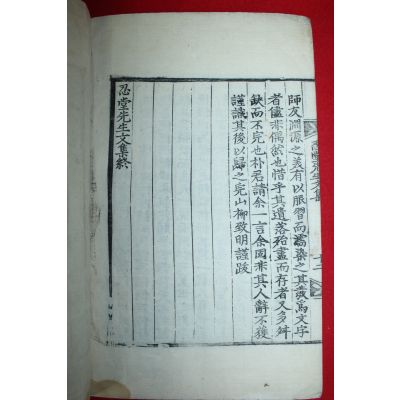 師友淵源之義有以服習而濡染之其發爲文字
者儘非偶然也惜乎其遺落殆盡而存者又多舛
缺而不完也朴君請余一言余固悲其人辭不獲
謹識其後以歸之完山柳致明謹跋
忍堂先生文集終
忍堂先生文集